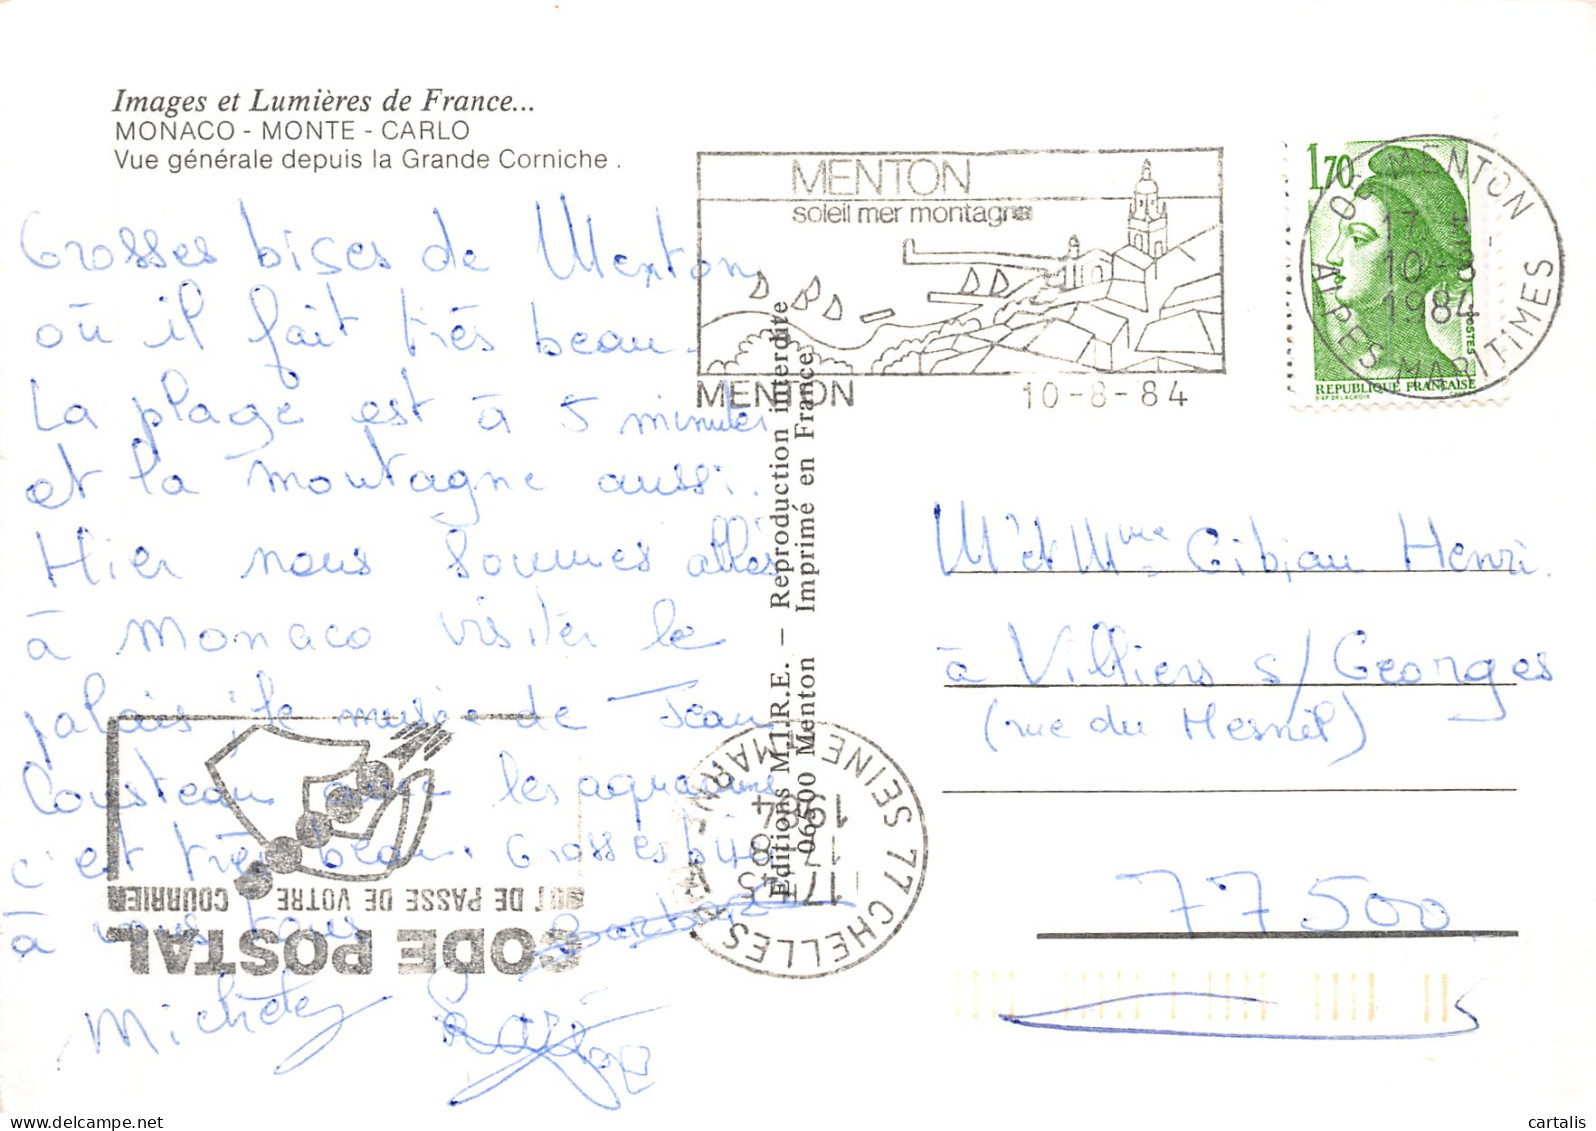 Images et Lumières de France...
MONACO - MONTE - CARLO
Vue générale depuis la Grande Corniche .
Grosses bises de Menton
où il fait très beau.
La plage est à 5 minutes
et la montagne aussi.
Hier nous sommes allés
à Monaco visiter le
palais ; le musée de Jean
Cousteau avec les aquariums
c'est très beau. Grosses bises
à vous tous
MENTON
soleil mer montagne
MENTON
10-8-84
1,70
REPUBLIQUE FRANÇAISE
POSTES
06 MENTON
17 H
10-8
1984
ALPES MARITIMES
Editions M.I.R.E. – Reproduction interdite
06500 Menton Imprimé en France
Mr et Mme Cibian Henri.
à Villiers s/Georges
(rue du Mesnil)
77500
CODE POSTAL
MOT DE PASSE DE VOTRE COURRIER
77 CHELLES
17H45
17 8
1984
SEINE MARNE